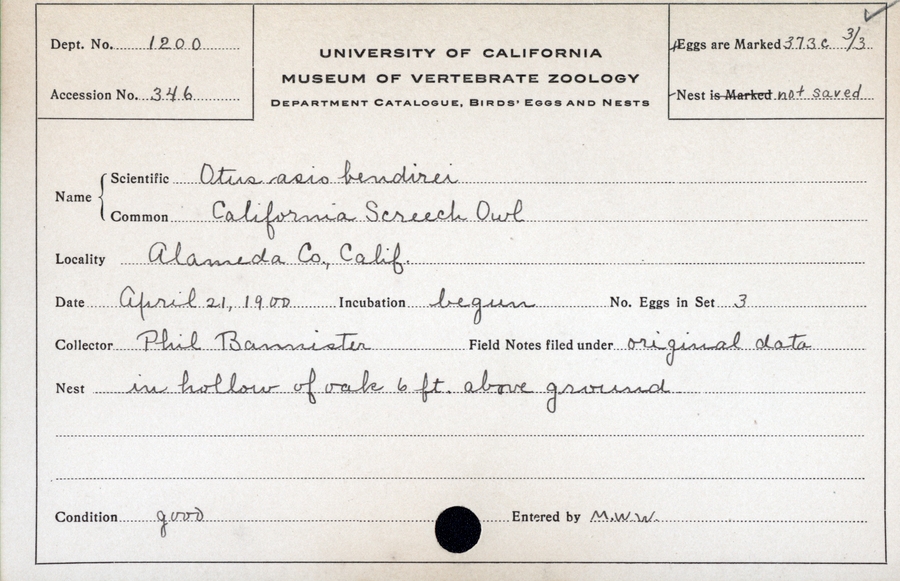 Dept. No. 1200
Accession No. 346
UNIVERSITY OF CALIFORNIA
MUSEUM OF VERTEBRATE ZOOLOGY
DEPARTMENT CATALOGUE, BIRDS' EGGS AND NESTS
Eggs are Marked 373c 3/3
Nest is Marked not saved
Name
Scientific Otus asio bendirei
Common California Screech Owl
Locality Alameda Co., Calif.
Date April 21, 1900 Incubation begun No. Eggs in Set 3
Collector Phil Bannister Field Notes filed under original data
Nest in hollow of oak 6 ft. above ground
Condition good Entered by M.W.W.